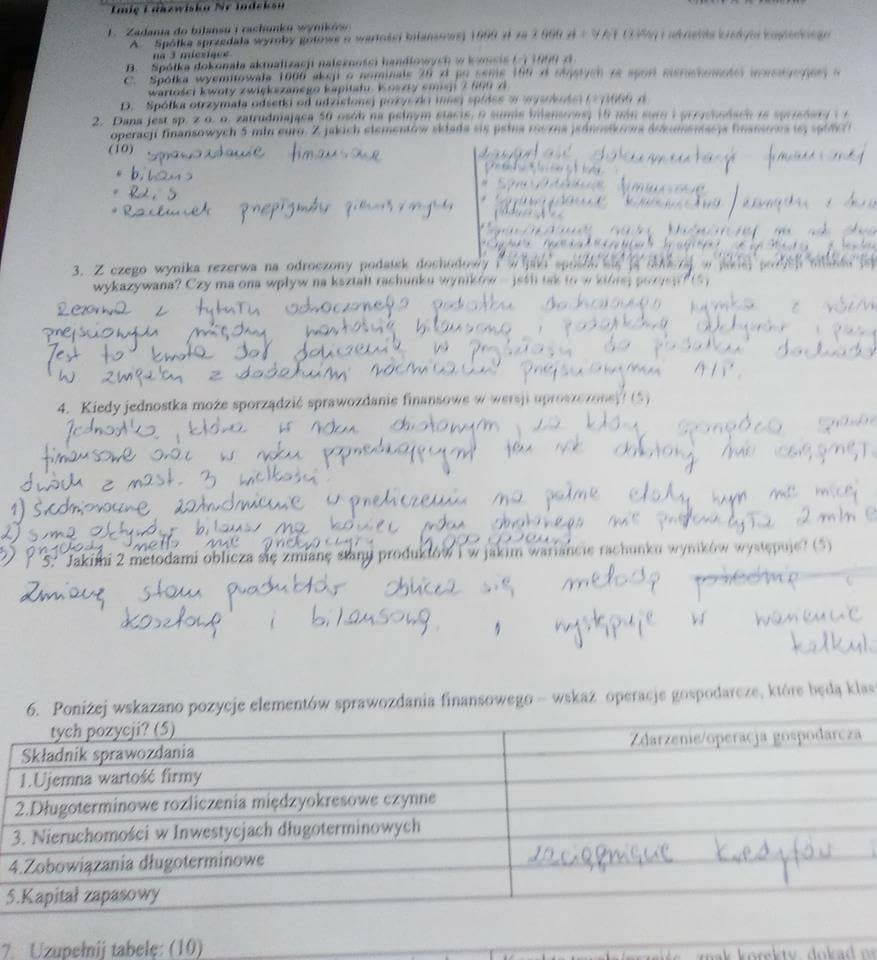 Imię i nazwisko Nr indeksu
1. Zadania do bilansu i rachunku wyników:
A. Spółka sprzedała wyroby gotowe o wartości bilansowej 1000 zł za 2 000 zł + VAT (23%) i udzieliła kredytu kupieckiego
na 3 miesiące.
B. Spółka dokonała aktualizacji należności handlowych w kwocie (-) 1000 zł.
C. Spółka wyemitowała 1000 akcji o nominale 20 zł po cenie 100 zł objętych za aport nieruchomości inwestycyjnej o
wartości kwoty zwiększanego kapitału. Koszty emisji 2 000 zł.
D. Spółka otrzymała odsetki od udzielonej pożyczki innej spółce w wysokości (+)1000 zł
2. Dana jest sp. z o. o. zatrudniająca 50 osób na pełnym etacie, o sumie bilansowej 10 mln euro i przychodach ze sprzedaży i z
operacji finansowych 5 mln euro. Z jakich elementów składa się pełna roczna jednostkowa dokumentacja finansowa tej spółki?
(10) sprawozdanie finansowe
• bilans
• RZ i S
• Rachunek przepływów pieniężnych
zawartość dokumentacji finansowej
• sprawozdanie finansowe
3. Z czego wynika rezerwa na odroczony podatek dochodowy i w jaki sposób się ją oblicza, w jakiej pozycji bilansu jest
wykazywana? Czy ma ona wpływ na kształt rachunku wyników – jeśli tak to w której pozycji? (5)
Rezerwa z tytułu odroczonego podatku dochodowego wynika z różn
przejściowych między wartością bilansową i podatkową aktywów i pasy
Jest to kwota do doliczenia w przyszłości do podatku dochodo
w związku z dodatnimi różnicami przejściowymi A/P.
4. Kiedy jednostka może sporządzić sprawozdanie finansowe w wersji uproszczonej? (5)
Jednostka, która w roku obrotowym, za który sporządza sprawo
finansowe oraz w roku poprzedzającym ten rok obrotowy nie osiągnęł
dwóch z nast. 3 wielkości
1) średnioroczne zatrudnienie w przeliczeniu na pełne etaty nie więcej
2) suma aktywów bilansu na koniec roku obrotowego nie przekroczyła 2 mln e
3) przychody netto nie
5. Jakimi 2 metodami oblicza się zmianę stanu produktów i w jakim wariancie rachunku wyników występuje? (5)
Zmianę stanu produktów oblicza się metodą
kosztową i bilansową, występuje w wariancie
kalkul
6. Poniżej wskazano pozycje elementów sprawozdania finansowego – wskaż operacje gospodarcze, które będą klas
tych pozycji? (5)
Składnik sprawozdania Zdarzenie/operacja gospodarcza
1.Ujemna wartość firmy
2.Długoterminowe rozliczenia międzyokresowe czynne
3. Nieruchomości w Inwestycjach długoterminowych
4.Zobowiązania długoterminowe zaciągnięcie kredytów i
5.Kapitał zapasowy
7. Uzupełnij tabelę: (10)
znak korekty, dokąd